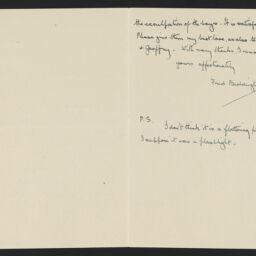 the exculpation of the boys. It is
Please give them my best love, as also to
& Geoffrey. With many thanks I
yours affectionately
Fred
P.S.
I don't think it is a flattering
I suppose it was a flashlight.